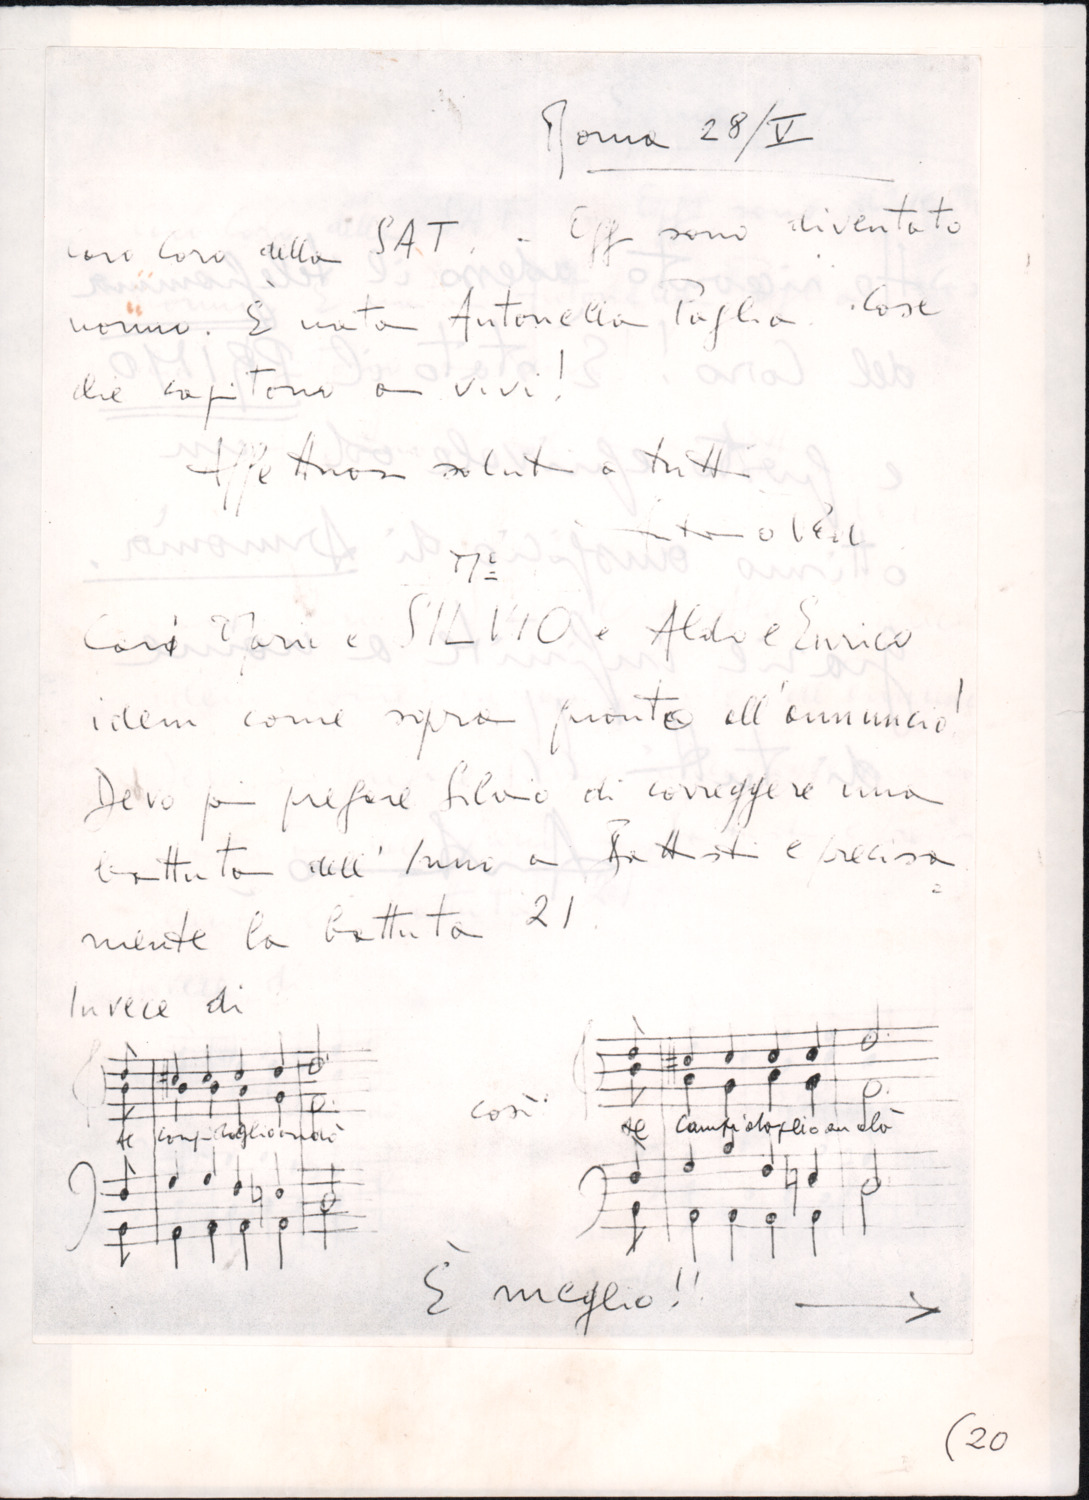 Roma 28/V
Caro Coro della SAT. - Oggi sono diventato
nonno. È nata Antonella Paglia. Cose
che capitano ai vivi!
Affettuosi saluti a tutti
Antonio Ved
Cari Mario e SILVIO e Aldo e Enrico
idem come sopra quanto all'annuncio!
Devo poi pregare Silvio di correggere una
battuta dell'Inno a Battisti e precisa
mente la battuta 21.
Invece di
così:
te campidoglio andò
te campidoglio andò
È meglio!!
(20